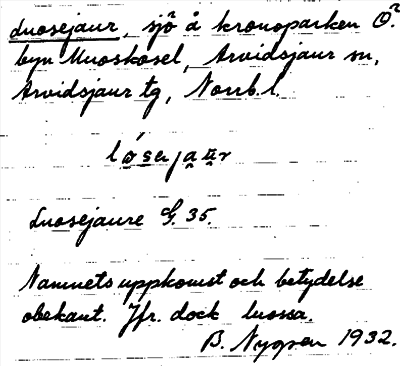 Luosejaur, sjö å kronoparken Ö.
byn Muoskosel, Arvidsjaur sn,
Arvidsjaur tg, Norrb. l.
lósejau̯r
Luosejaure G. 35.
Namnets uppkomst och betydelse
obekant. Jfr. dock luossa.
B. Nygren 1932.